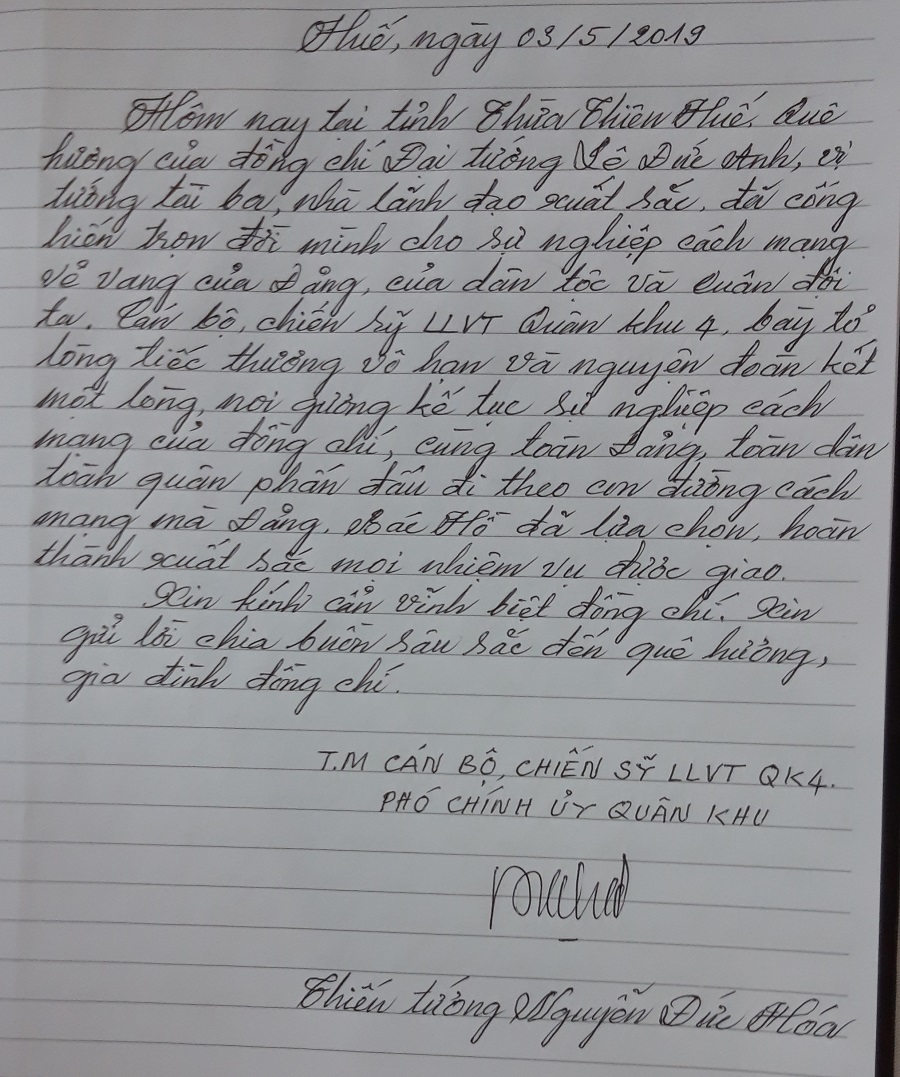 Huế, ngày 03/5/2019
Hôm nay tại tỉnh Thừa Thiên Huế. Quê
hương của đồng chí Đại tướng Lê Đức Anh, vị
tướng tài ba, nhà lãnh đạo xuất sắc, đã cống
hiến trọn đời mình cho sự nghiệp cách mạng
vẻ vang của Đảng, của dân tộc và Quân đội
ta. Cán bộ, chiến sỹ LLVT Quân khu 4, bày tỏ
lòng tiếc thương vô hạn và nguyện đoàn kết
một lòng, noi gương kế tục sự nghiệp cách
mạng của đồng chí, cùng toàn Đảng, toàn dân
toàn quân phấn đấu đi theo con đường cách
mạng mà Đảng, Bác Hồ đã lựa chọn, hoàn
thành xuất sắc mọi nhiệm vụ được giao.
Xin kính cẩn vĩnh biệt đồng chí. Xin
gửi lời chia buồn sâu sắc đến quê hương,
gia đình đồng chí.
T.M CÁN BỘ, CHIẾN SỸ LLVT QK4.
PHÓ CHÍNH ỦY QUÂN KHU
Thiếu tướng Nguyễn Đức Hóa